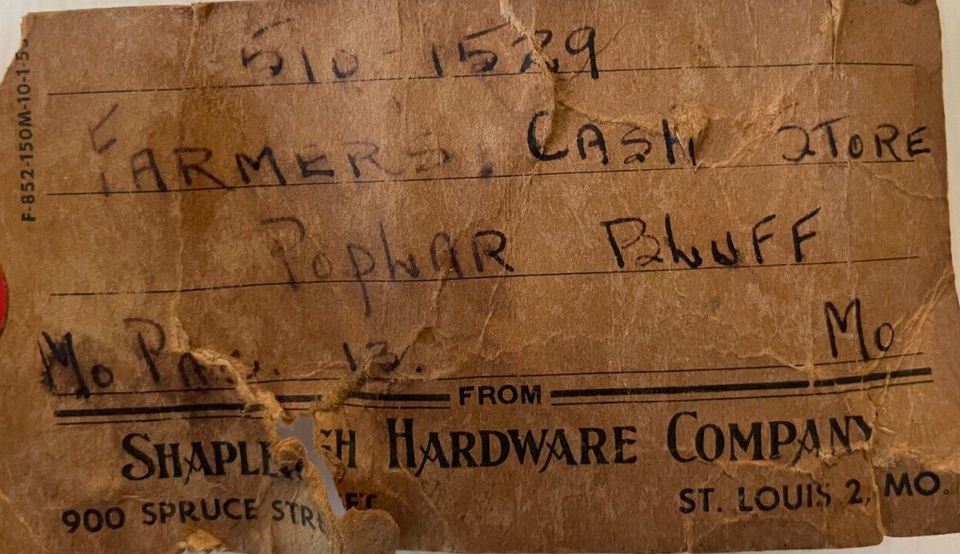 F-852-150M-10-1-5
510-1529
FARMERS. CASH STORE
PoplAR BluFF
Mo Pac. 13. Mo
FROM
SHAPLEIGH HARDWARE COMPANY
900 SPRUCE STREET ST. LOUIS 2, MO.